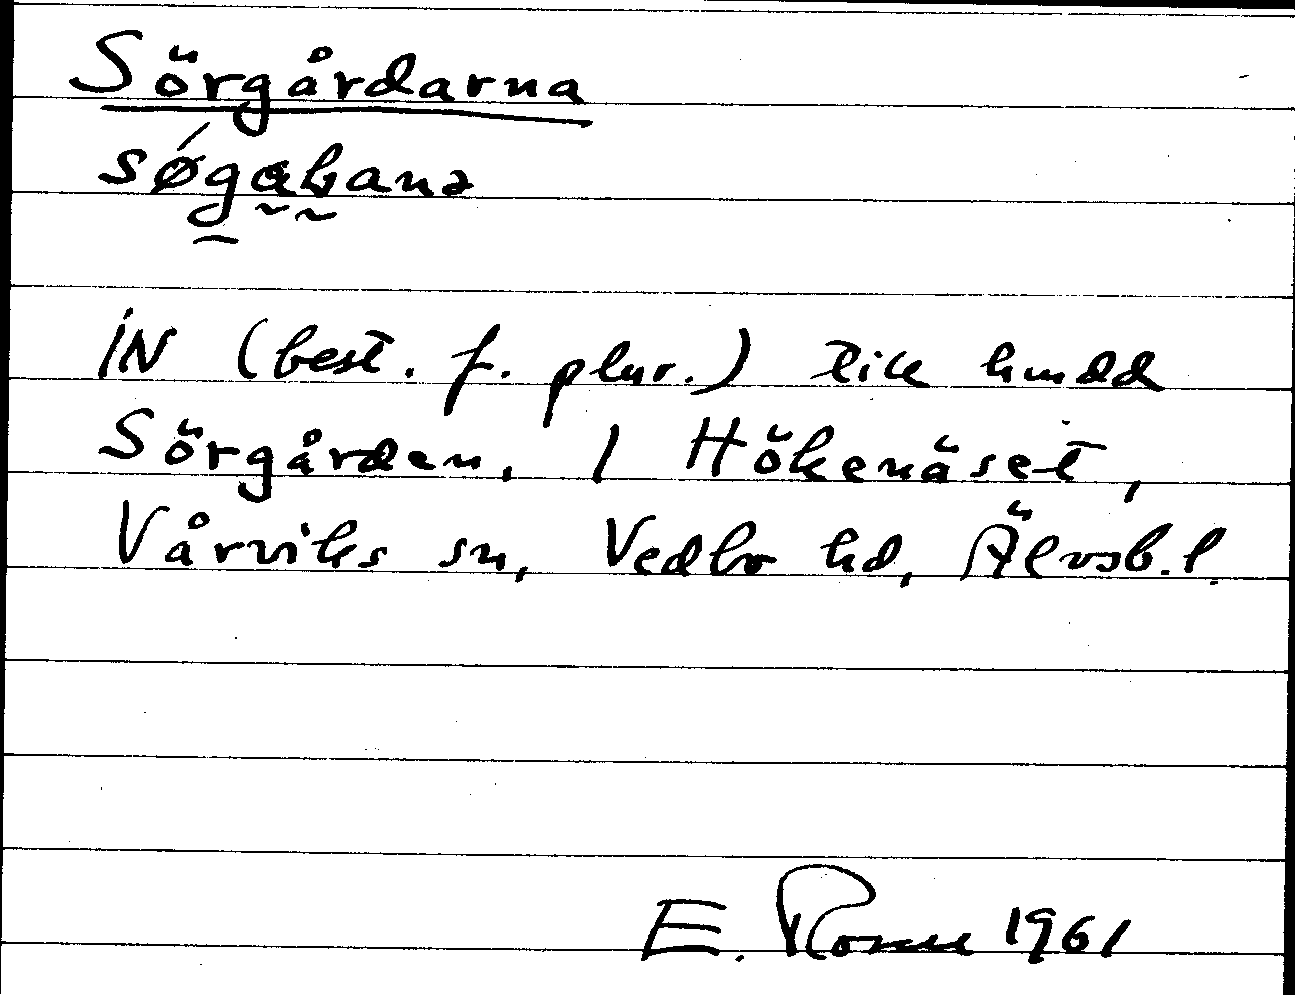 Sörgårdarna
IN (best. f. plur.) till hmdd
Sörgården, 1 Hökenäset,
Vårviks sn, Vedbo hd, Älvsb. l.
E. 1961